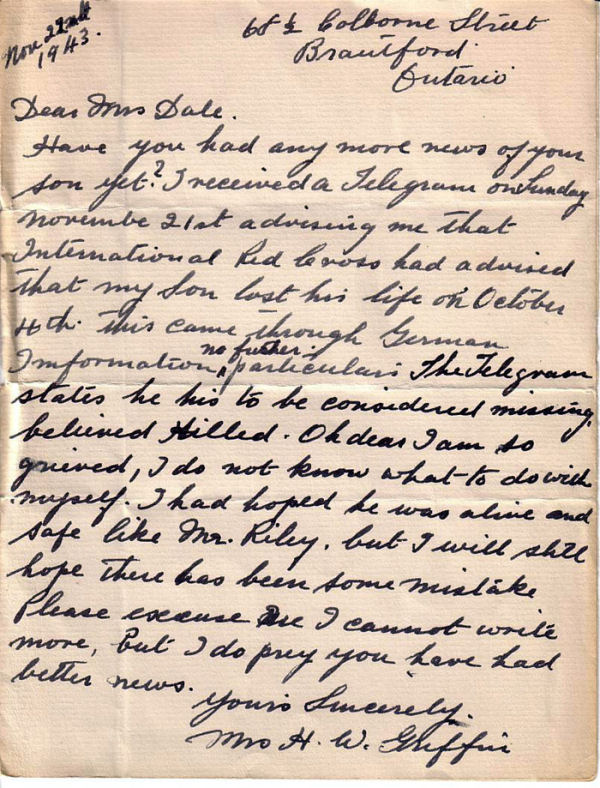 Nov 22nd
1943.
68½ Colborne Street
Brantford
Ontario
Dear Mrs Dale.
Have you had any more news of your
son yet? I received a Telegram on Sunday
novembe 21st advising me that
International Red Cross had advised
that my Son lost his life on October
4th. this came through German
Imformation, no futher particulars The Telegram
states he his to be considered missing,
believed Killed. Oh dear I am so
grieved, I do not know what to do with
myself. I had hoped he was alive and
safe like Mr. Riley. but I will still
hope there has been some mistake
Please excuse me I cannot write
more, but I do prey you have had
better news.
Yours Sincerely.
Mrs H. W. Griffin